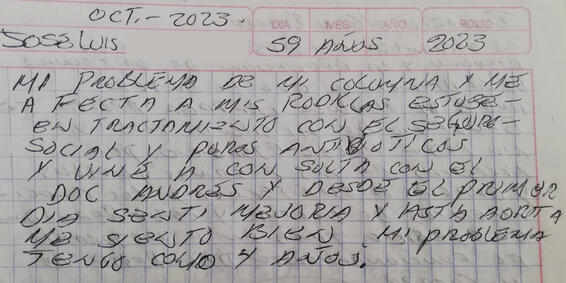 OCT.- 2023.
DIA MES AÑO FOLIO
JOSE LUIS 59 AÑOS 2023
MI PROBLEMA DE MI COLUMNA Y ME
AFECTA A MIS RODILLAS ESTUBE-
EN TRACTAMIENTO CON EL SEGURO-
SOCIAL Y PUROS ANTIBIOTICOS
Y VINE A CON SULTA CON EL
DOC ANDRES Y DESDE EL PRIMER
DIA SENTI MEJORIA Y ASTA AORTA
ME SIENTO BIEN MI PROBLEMA
TENGO COMO 4 AÑOS.